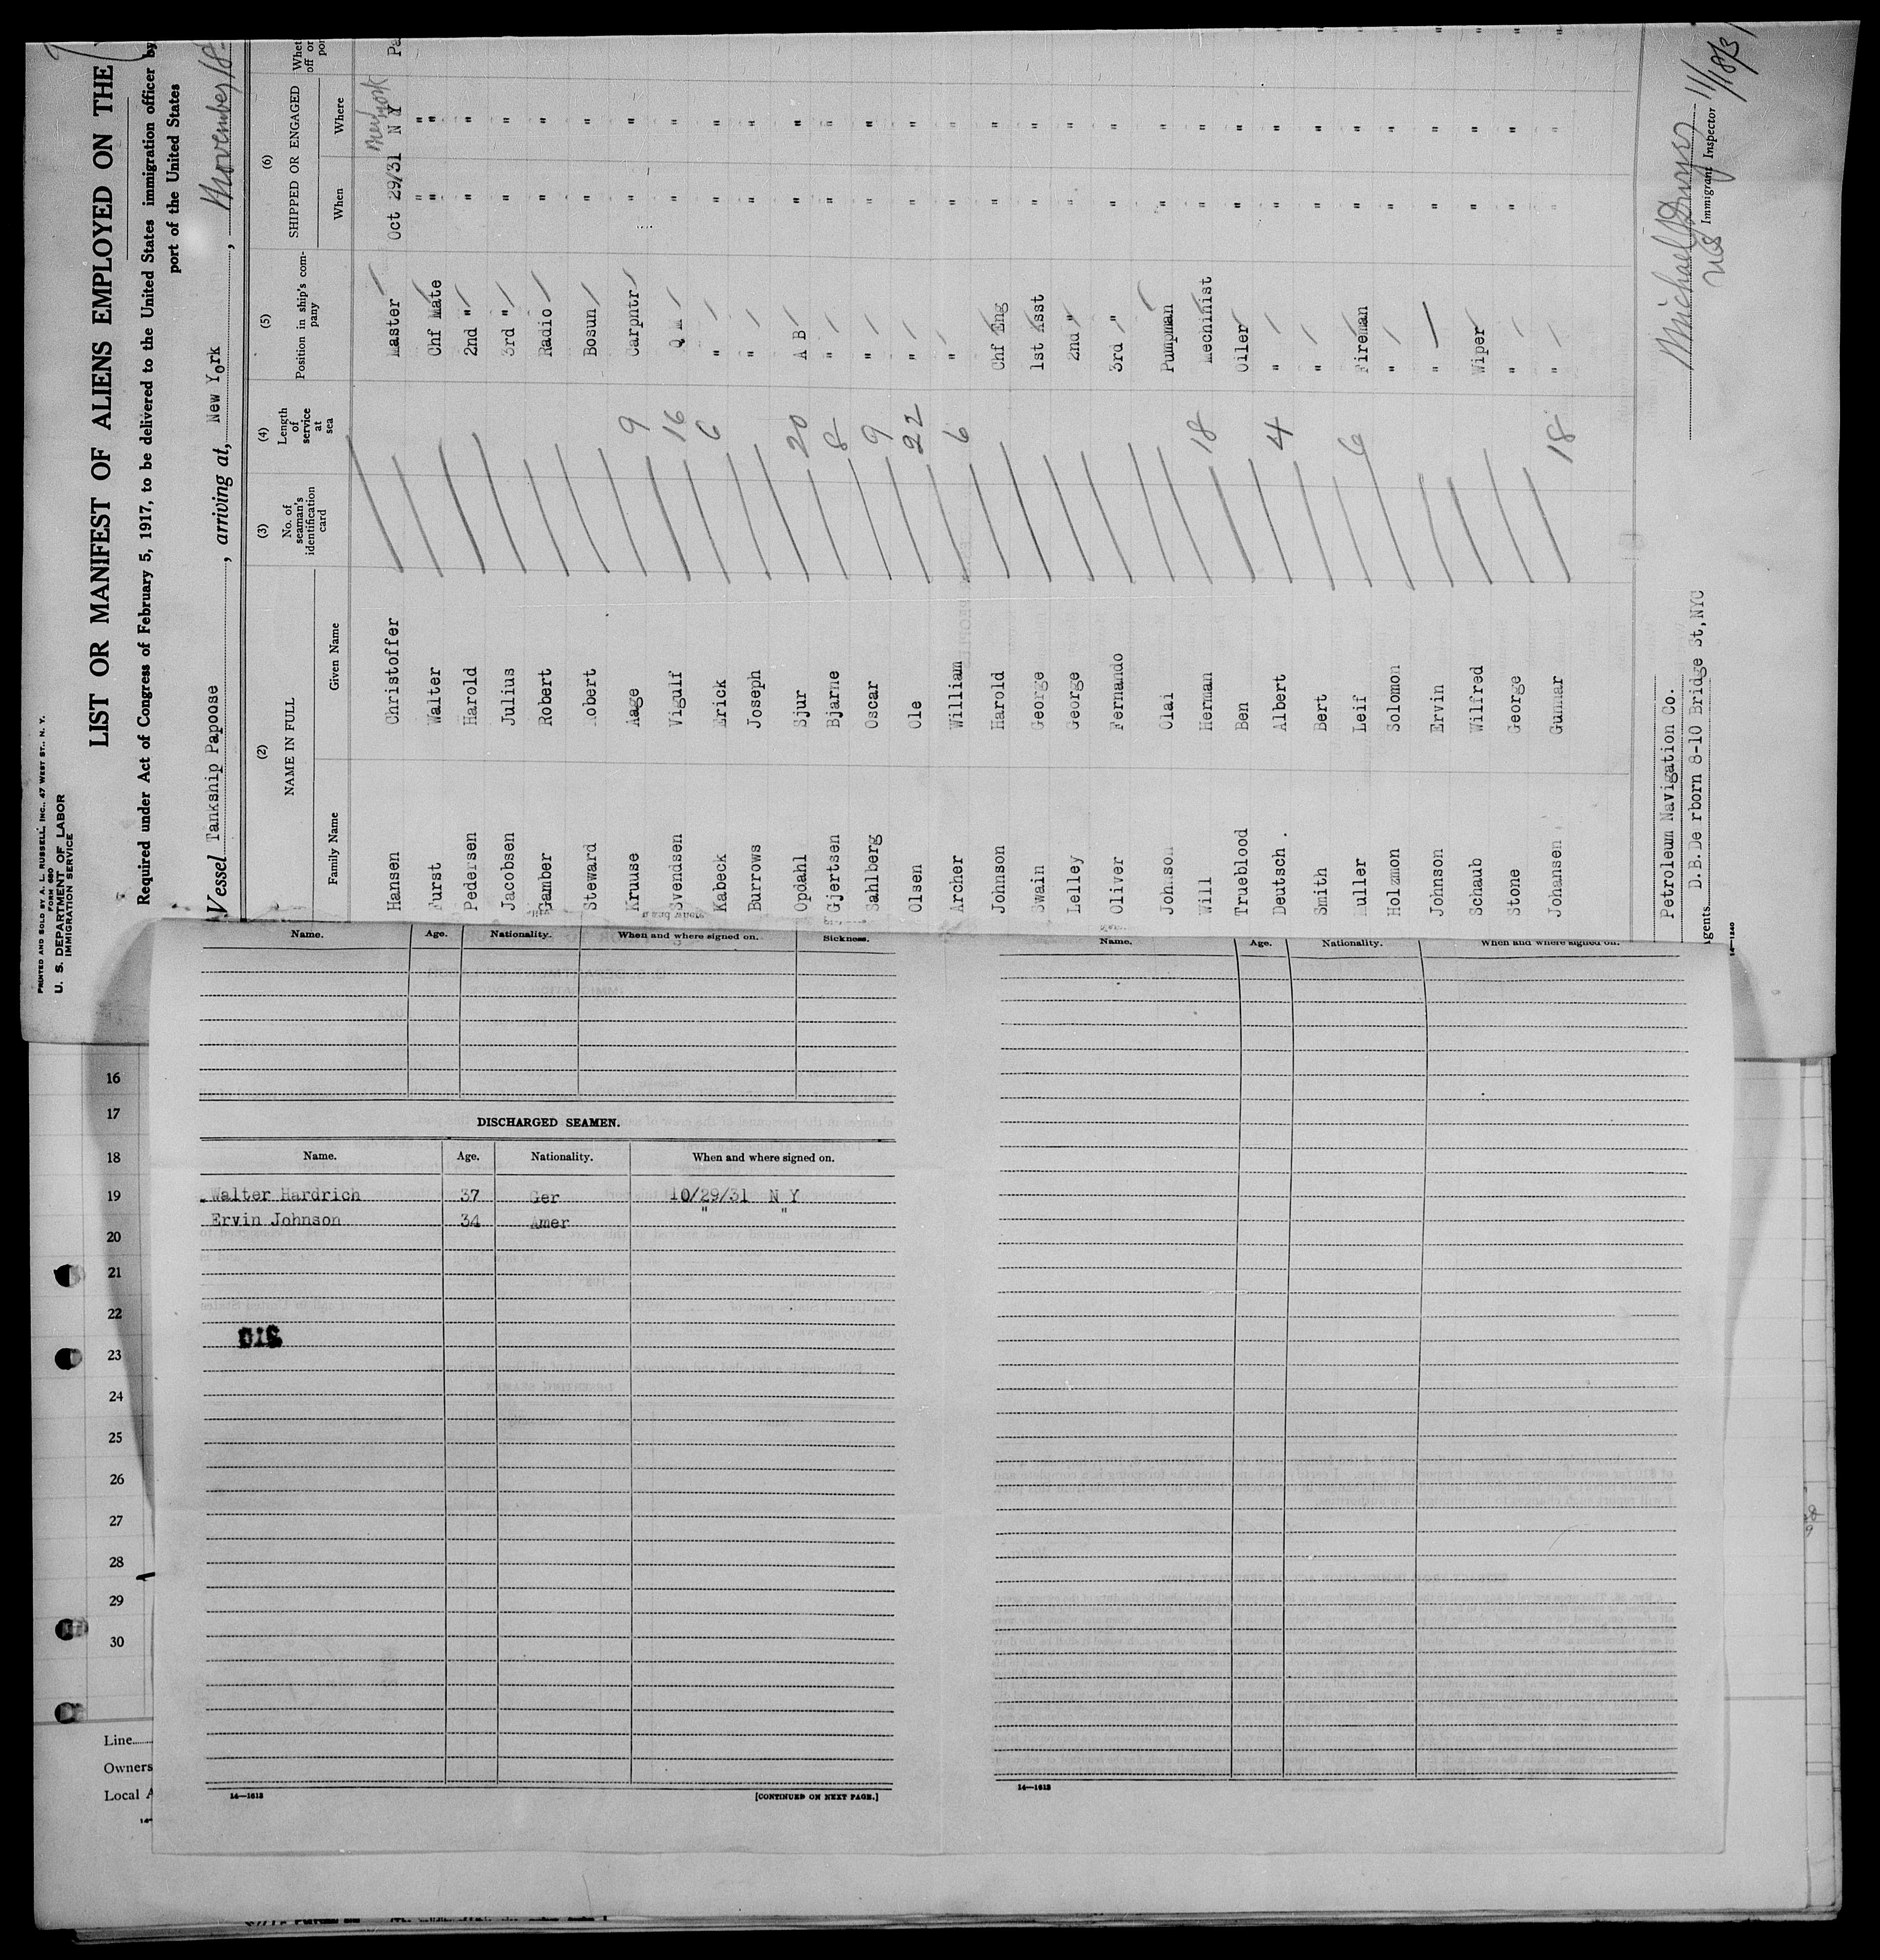 PRINTED AND SOLD BY A. L. RUSSELL, INC., 47 WEST ST., N. Y.
FORM 680
U. S. DEPARTMENT OF LABOR
IMMIGRATION SERVICE
LIST OR MANIFEST OF ALIENS EMPLOYED ON THE
Required under Act of Congress of February 5, 1917, to be delivered to the United States immigration officer by
port of the United States
Vessel Tankship Papoose, arriving at, New York, November 18
(2) (3) (4) (5) (6)
NAME IN FULL No. of seaman's identification card Length of service at sea Position in ship's company SHIPPED OR ENGAGED
Family Name Given Name When Where
Hansen Christoffer Master Oct 29/31 N Y New York
Furst Walter Chf Mate " "
Pedersen Harold 2nd " " "
Jacobsen Julius 3rd " " "
Gamber Robert Radio " "
Steward Robert Bosun " "
Kruuse Aage 9 Carpntr " "
Svendsen Vigulf 16 Q M " "
Kabeck Erick 6 " " "
Burrows Joseph " " "
Opdahl Sjur 20 A B " "
Gjertsen Bjarne 8 " " "
Sahlberg Oscar 9 " " "
Olsen Ole 22 " " "
Archer William 6 " " "
Johnson Harold Chf Eng " "
Swain George 1st Asst " "
Lelley George 2nd " " "
Oliver Fernando 3rd " " "
Johnson Olai Pumpman " "
Will Herman 18 Mechinist " "
Trueblood Ben Oiler " "
Deutsch. Albert 4 " " "
Smith Bert " " "
Muller Leif 6 Fireman " "
Holzmon Solomon " " "
Johnson Ervin " " "
Schaub Wilfred Wiper " "
Stone George " " "
Johansen Gunnar 18 " " "
Petroleum Navigation Co.
Agents D.B.De rborn 8-10 Bridge St,NYC
14—1240
Immigrant Inspector
11/18/31
Name. Age. Nationality. When and where signed on. Sickness.
DISCHARGED SEAMEN.
Name. Age. Nationality. When and where signed on.
Walter Hardrich 37 Ger 10/29/31 N Y
Ervin Johnson 34 Amer " "
14—1613
[CONTINUED ON NEXT PAGE.]
Name. Age. Nationality. When and where signed on.
14—1613
16
17
18
19
20
21
22
23
24
25
26
27
28
29
30
Line
Owners
Local A